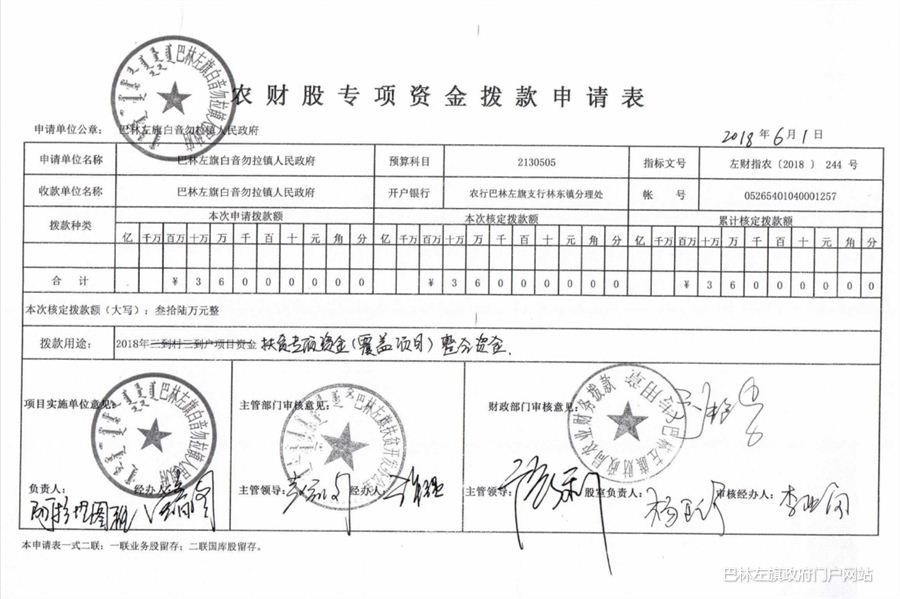 农财股专项资金拨款申请表
申请单位公章： 巴林左旗白音勿拉镇人民政府
2018年6月1日
申请单位名称 巴林左旗白音勿拉镇人民政府 预算科目 2130505 指标文号 左财指农〔2018 〕 244 号
收款单位名称 巴林左旗白音勿拉镇人民政府 开户银行 农行巴林左旗支行林东镇分理处 帐 号 05265401040001257
拨款种类 本次申请拨款额 本次核定拨款额 累计核定拨款额
亿 千万 百万 十万 万 千 百 十 元 角 分 亿 千万 百万 十万 万 千 百 十 元 角 分 亿 千万 百万 十万 万 千 百 十 元 角 分
合 计 ¥ 3 6 0 0 0 0 0 0 ¥ 3 6 0 0 0 0 0 0 ¥ 3 6 0 0 0 0 0 0
本次核定拨款额（大写）：叁拾陆万元整
拨款用途： 2018年三到村三到户项目资金 扶贫专项资金（覆盖项目）整合资金.
项目实施单位意见： 主管部门审核意见： 财政部门审核意见：
巴林左旗白音勿拉镇人民政府
负责人： 经办人： 主管领导： 经办人： 主管领导： 股室负责人： 审核经办人：
本申请表一式二联：一联业务股留存；二联国库股留存。
巴林左旗政府门户网站